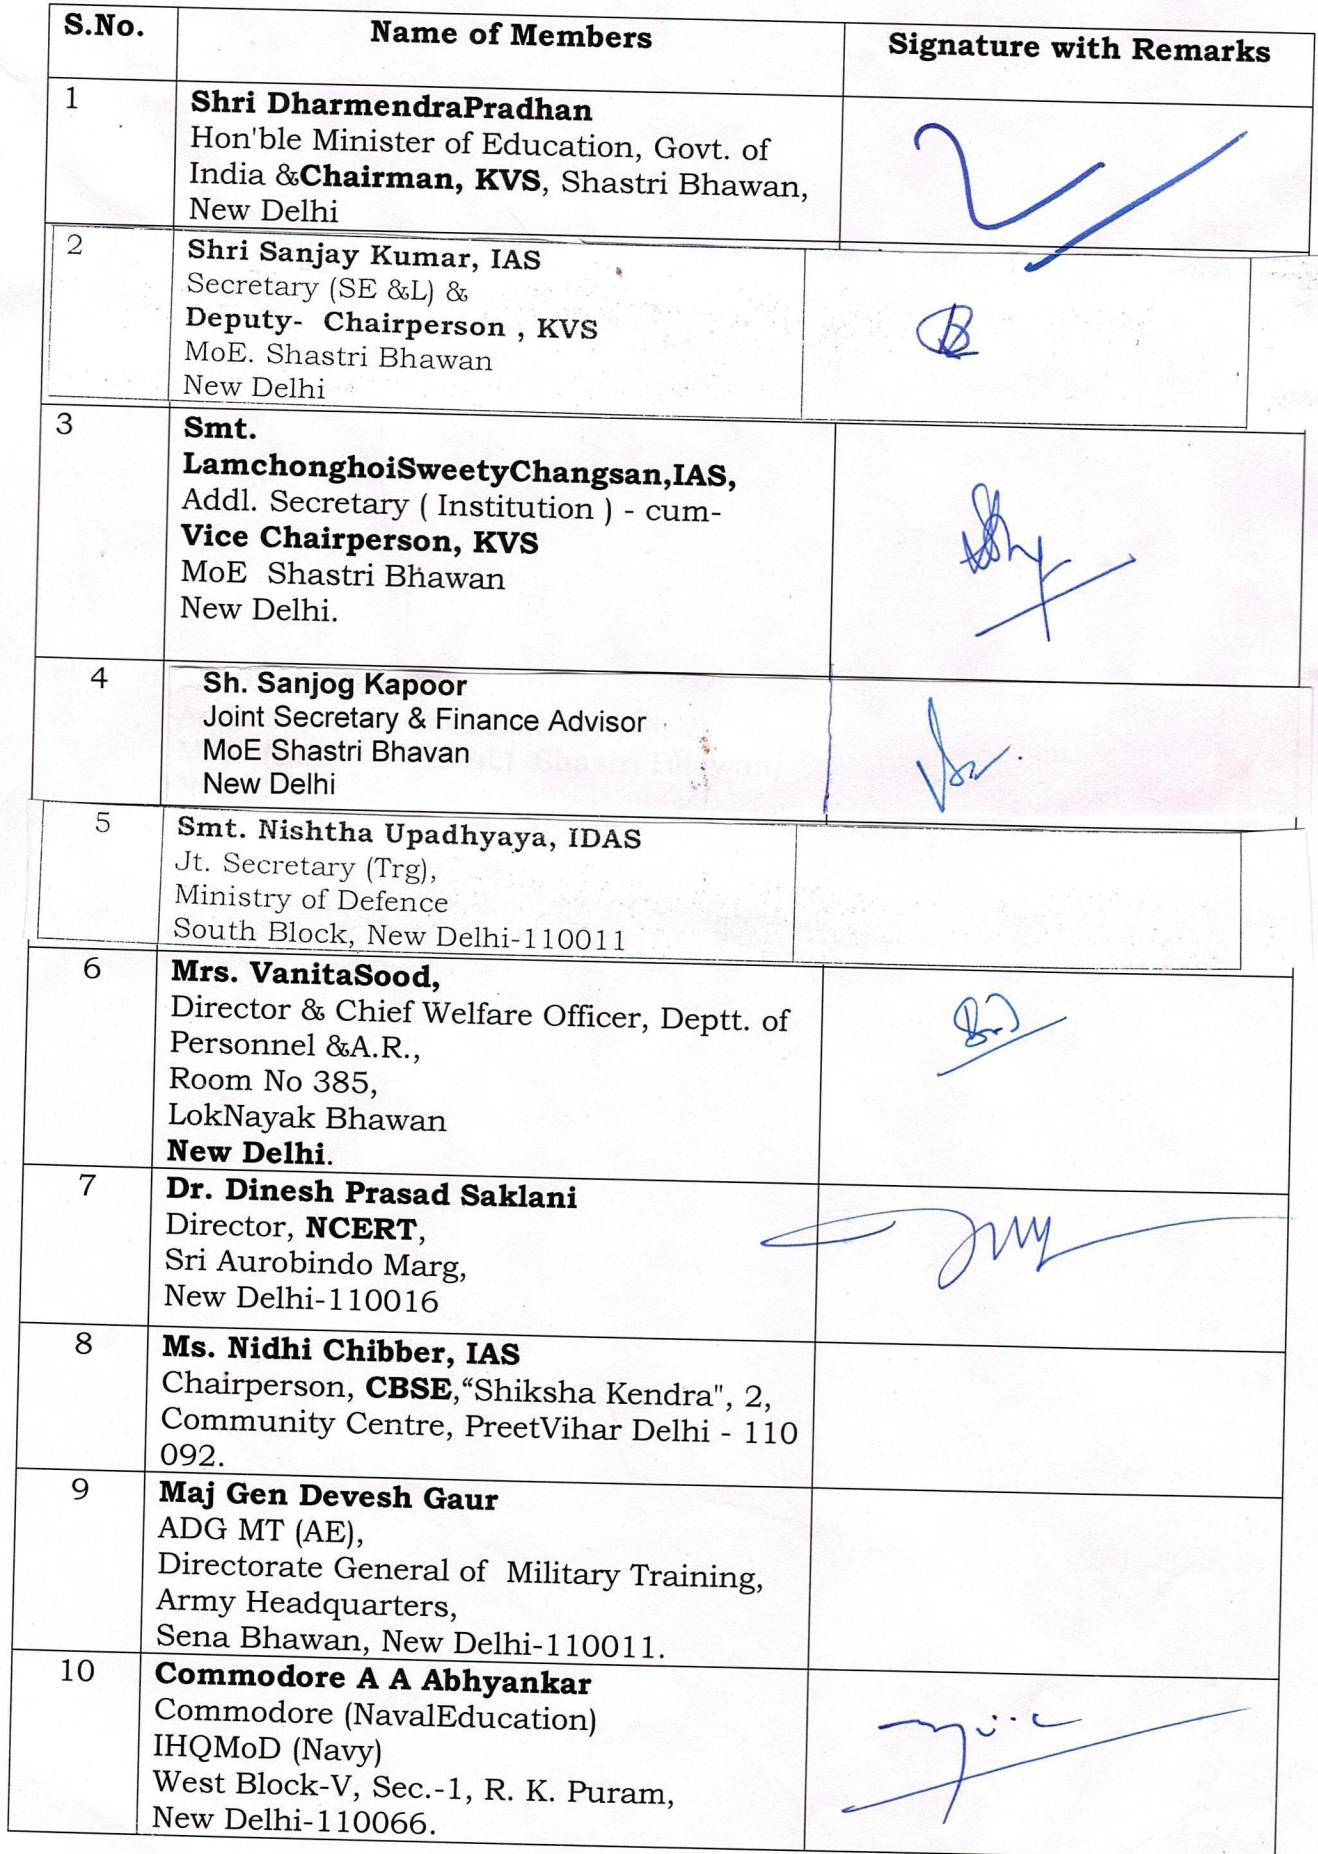 S.No.
Name of Members
Signature with Remarks
1
Shri DharmendraPradhan
Hon'ble Minister of Education, Govt. of
India &Chairman, KVS, Shastri Bhawan,
New Delhi
2
Shri Sanjay Kumar, IAS
Secretary (SE &L) &
Deputy- Chairperson , KVS
MoE. Shastri Bhawan
New Delhi
3
Smt.
LamchonghoiSweetyChangsan,IAS,
Addl. Secretary ( Institution ) - cum-
Vice Chairperson, KVS
MoE Shastri Bhawan
New Delhi.
4
Sh. Sanjog Kapoor
Joint Secretary & Finance Advisor
MoE Shastri Bhavan
New Delhi
5
Smt. Nishtha Upadhyaya, IDAS
Jt. Secretary (Trg),
Ministry of Defence
South Block, New Delhi-110011
6
Mrs. VanitaSood,
Director & Chief Welfare Officer, Deptt. of
Personnel &A.R.,
Room No 385,
LokNayak Bhawan
New Delhi.
7
Dr. Dinesh Prasad Saklani
Director, NCERT,
Sri Aurobindo Marg,
New Delhi-110016
8
Ms. Nidhi Chibber, IAS
Chairperson, CBSE,“Shiksha Kendra", 2,
Community Centre, PreetVihar Delhi - 110
092.
9
Maj Gen Devesh Gaur
ADG MT (AE),
Directorate General of Military Training,
Army Headquarters,
Sena Bhawan, New Delhi-110011.
10
Commodore A A Abhyankar
Commodore (NavalEducation)
IHQMoD (Navy)
West Block-V, Sec.-1, R. K. Puram,
New Delhi-110066.